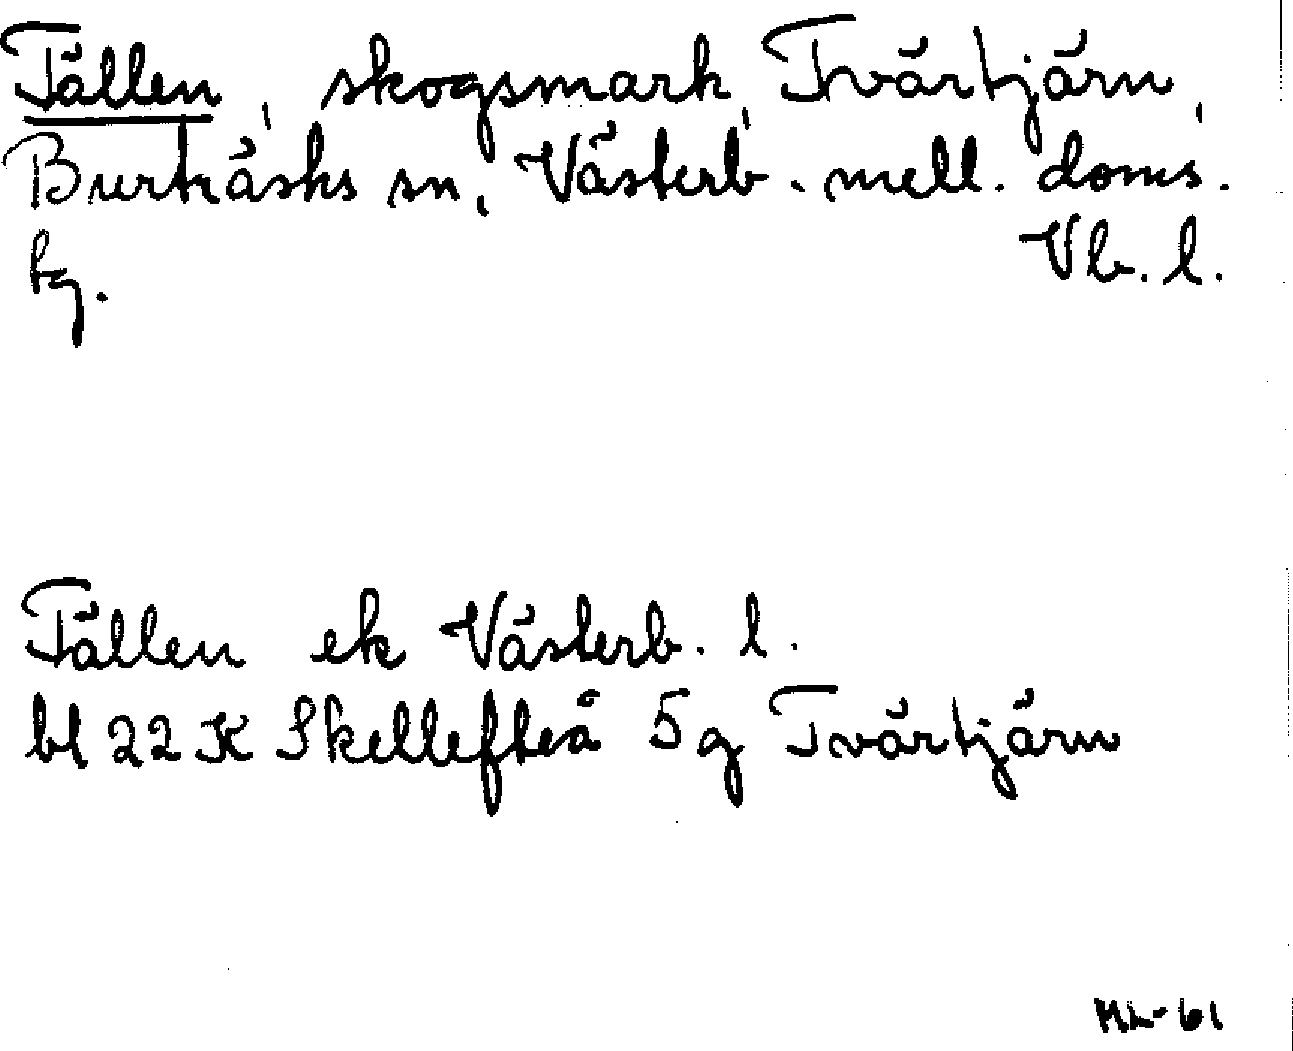 Tällen, skogsmark, Tvärtjärn,
Burträsks sn, Västerb. mell. doms.
tg. Vb. l.
Tällen ek Västerb. l.
bl 22 K Skellefteå 5 g Tvärtjärn
ML-61